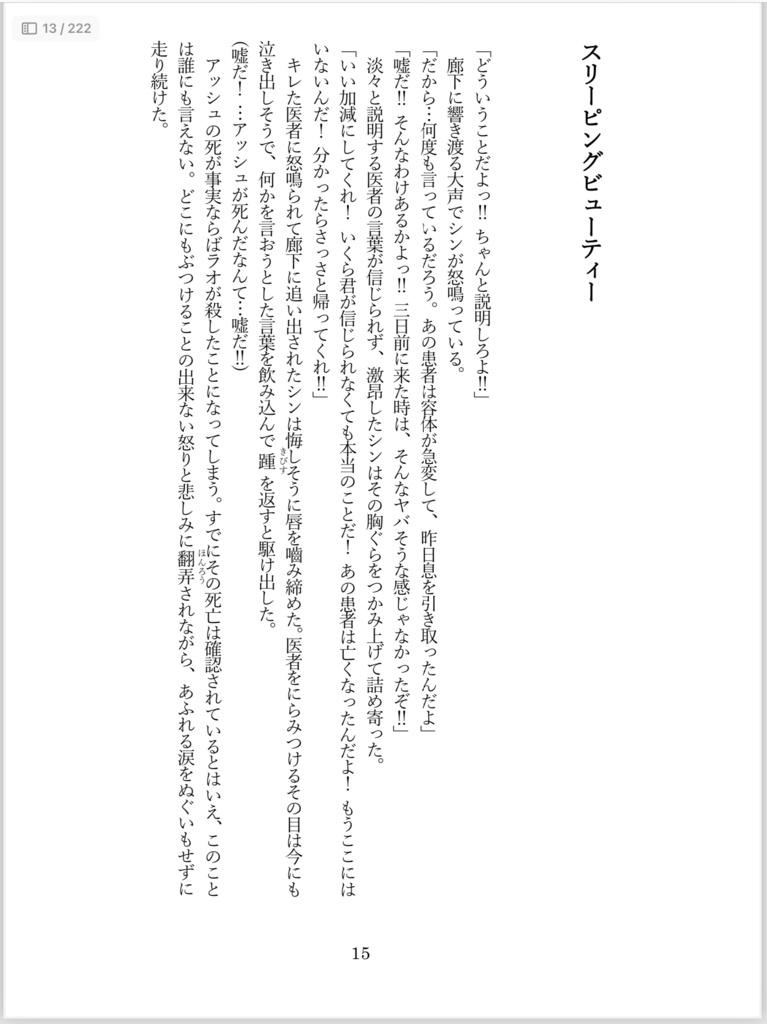 13 / 222
スリーピングビューティー
「どういうことだよっ!! ちゃんと説明しろよ!!」
廊下に響き渡る大声でシンが怒鳴っている。
「だから…何度も言っているだろう。あの患者は容体が急変して、昨日息を引き取ったんだよ」
「嘘だ!! そんなわけあるかよっ!! 三日前に来た時は、そんなヤバそうな感じゃなかったぞ!!」
淡々と説明する医者の言葉が信じられず、激昂したシンはその胸ぐらをつかみ上げて詰め寄った。
「いい加減にしてくれ！ いくら君が信じられなくても本当のことだ！ あの患者は亡くなったんだよ！ もうここには
いないんだ！ 分かったらさっさと帰ってくれ!!」
キレた医者に怒鳴られて廊下に追い出されたシンは悔しそうに唇を嚙み締めた。医者をにらみつけるその目は今にも
泣き出しそうで、何かを言おうとした言葉を飲み込んで踵きびすを返すと駆け出した。
(嘘だ！ …アッシュが死んだなんて…嘘だ!!)
アッシュの死が事実ならばラオが殺したことになってしまう。すでにその死亡は確認されているとはいえ、このこと
は誰にも言えない。どこにもぶつけることの出来ない怒りと悲しみに翻弄ほんろうされながら、あふれる涙をぬぐいもせずに
走り続けた。
15